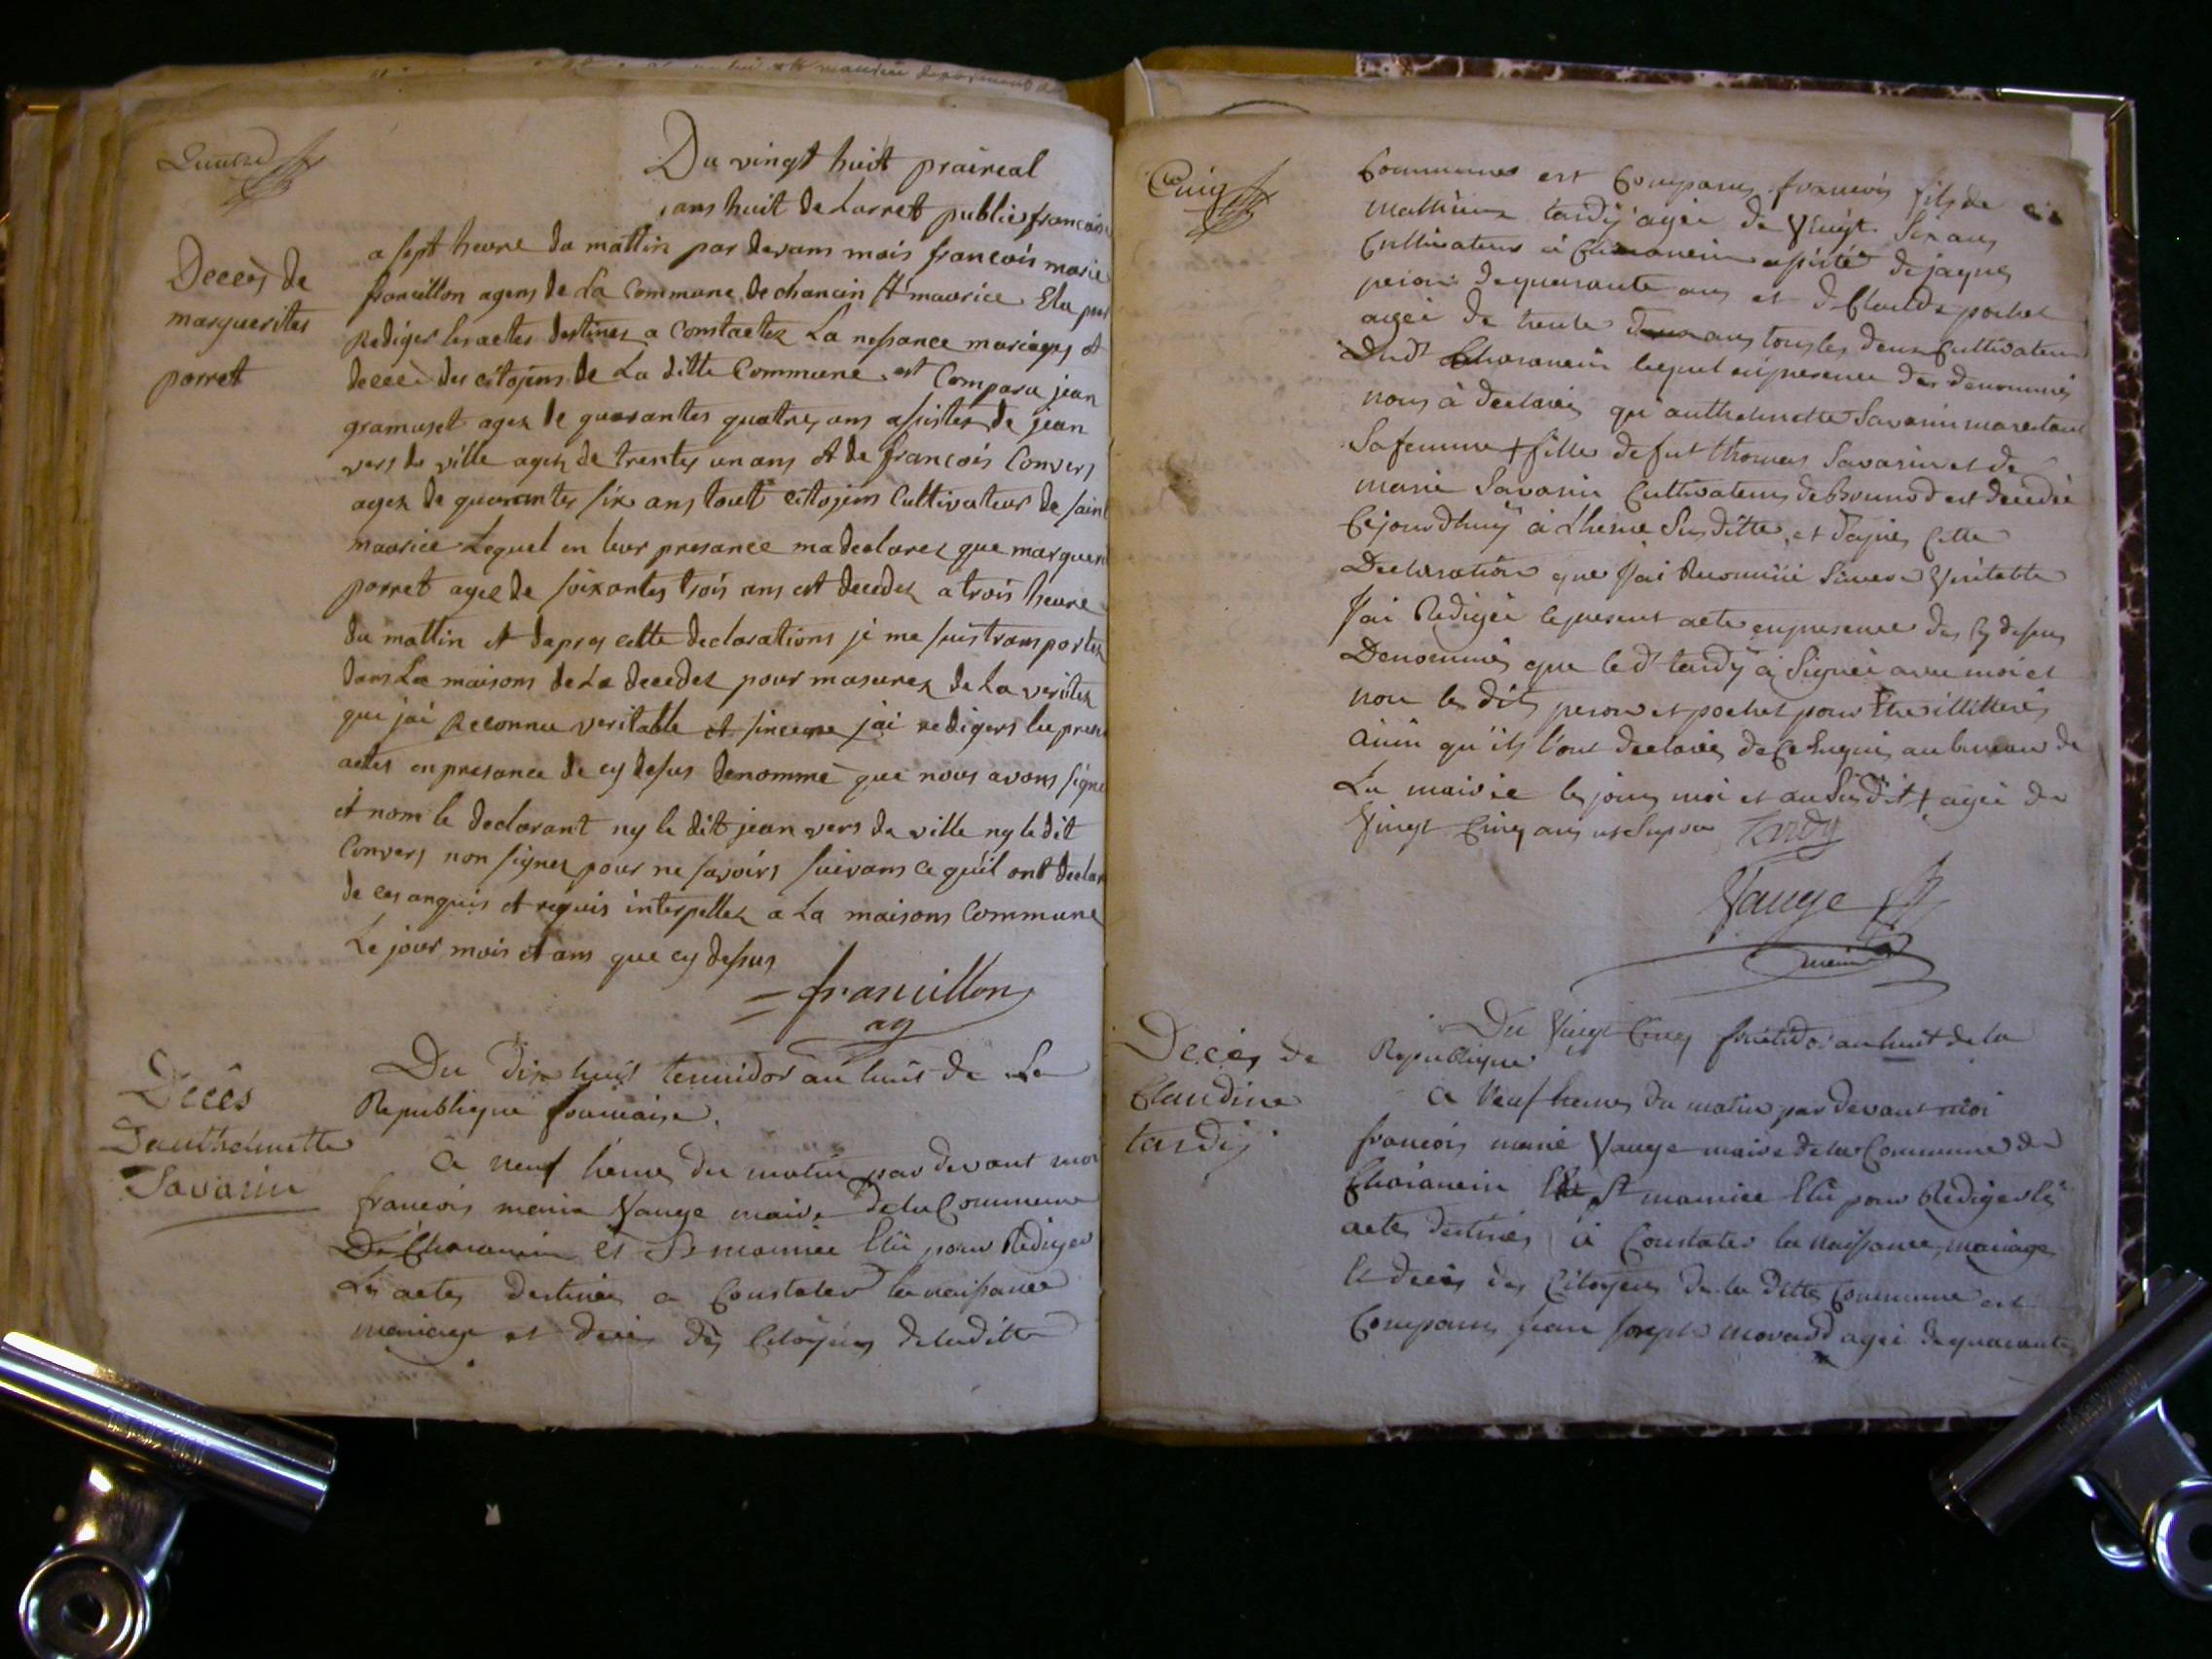 Du vingt huit praireal
ans huit de Larret publie francaise
Decès de
marguerites
porret
a sept heure du mattin par devans mois francois marie
francillon agens de La Commune de chanein st maurice Elu pour
Rediger les actes destinez a constactez La nessance mariages et
decee des citojens de La ditte Commune est Comparu jean
gramuset agez de quarantes quatres ans assistez de jean
vers de ville agez de trentes un ans et de francois Convers
agez de quarantes six ans tout citojens Cultivateur de saint
maurice Lequel en leur presance ma declarez que marguerit
porret agee de soixantes trois ans est decedez a trois heure
du mattin et dapres cette declarations je me suis transportez
dans La maisons de La decedez pour masurez de La veritez
que jai Reconnu veritable et sincere jai redigers le present
actes en presance de cy desus denommé que nous avons signe
et nom le declarant ny le dit jean vers de ville ny le dit
Convers non signez pour ne savoirs suivans ce qu'il ont declar
de ces anquis et requis interpellez a La maisons Commune
Le jour mois et ans que cy desus
francillon
ag
Décés
Danthelmette
Savarin
Du Dix huit termidor an huit de La
Republique francaise.
à neuf heures du matin par devant moi
francois marie Vauge maire de la Commune
De Chaneins et St maurice Elû pour Rediger
Les actes destinés a Constater la naissance
mariage et decés des Citoyens de la ditte
Cinq
Commune est Comparus francois fils de
mathieux tardÿ agée de Vingt six ans
Cultivateur à Chaneins assisté de jaques
peron de quarante ans et de Claude pochet
agée de trente deux ans tous les deux Cultivateurs
dud Chaneins lequel en presence des denommés
nous à declarés qu'anthelmette Savarin
Sa femme + fille de fut thomas Savarin et de
marie Savarin Cultivateurs de est decedée
Cejourdhuÿ à L'heure Susditte, et d'apres Cette
Declaration que J'ai Reconnüe Sincere Veritable
J'ai Redigée le present acte en presence des Cy dessus
Denommés que led tardÿ à Signée avec moi et
non les dits peron et pochet pour être illitterés
ainsi qu'ils l'ont declarés de Ce Enquis au bureau de
La mairie les jour moi et an Susdit + agée de
Vingt Cinq ans
Tardy
Vauge
maire
Decés de
Claudine
tardÿ
Du Vingt Cinq fructidor an huit de la
Republique
à Neuf heures du matin par devant moi
francois marie Vauge maire de la Commune de
Chaneins St maurice Elû pour Rediger les
actes destinés à Constater la naissance, mariage
Et decés des Citoyens de la ditte Commune est
Comparus jean joseph morand agée de quarante